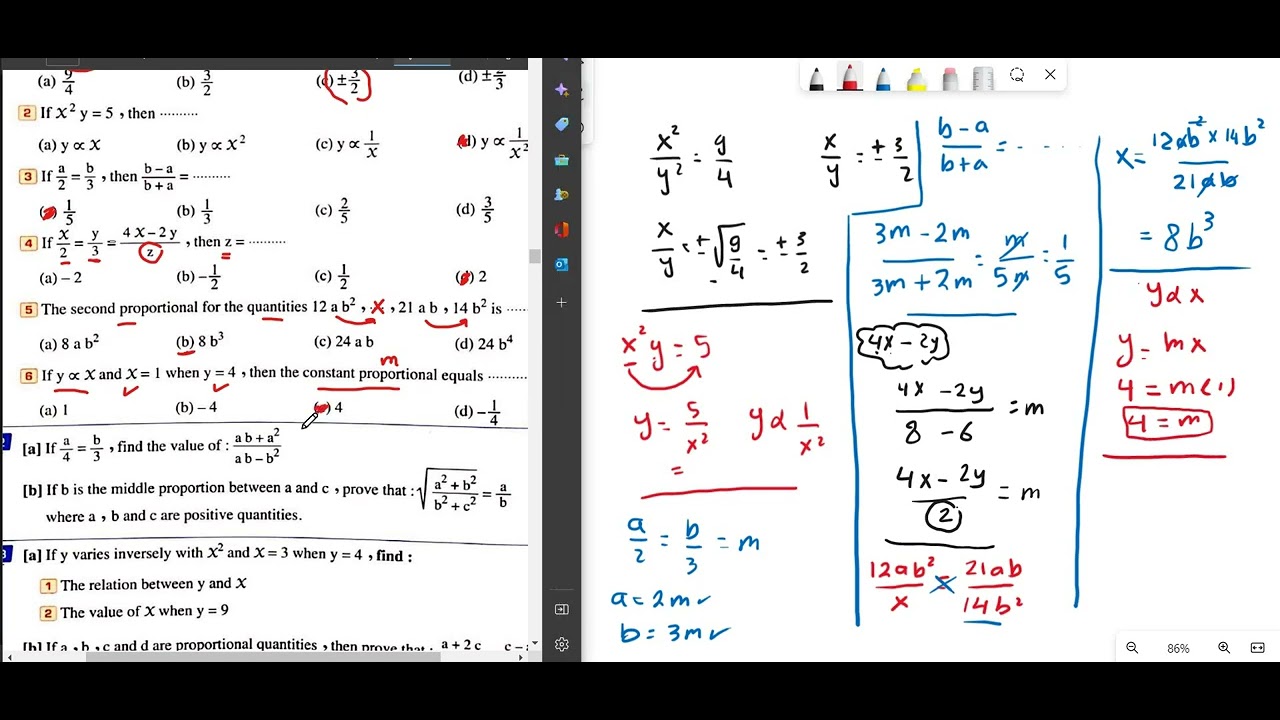 (a) 9/4 (b) 3/2 (c) ±3/2 (d) ±2/3
2 If x² y = 5 , then ..........
(a) y ∝ x (b) y ∝ x² (c) y ∝ 1/x (d) y ∝ 1/x²
3 If a/2 = b/3 , then (b – a)/(b + a) = ..........
(a) 1/5 (b) 1/3 (c) 2/5 (d) 3/5
4 If x/2 = y/3 = (4 x – 2 y)/z , then z = ..........
(a) – 2 (b) – 1/2 (c) 1/2 (d) 2
5 The second proportional for the quantities 12 a b² , x , 21 a b , 14 b² is ......
(a) 8 a b² (b) 8 b³ (c) 24 a b (d) 24 b⁴
m
6 If y ∝ x and x = 1 when y = 4 , then the constant proportional equals ..........
(a) 1 (b) – 4 (c) 4 (d) – 1/4
[a] If a/4 = b/3 , find the value of : (a b + a²)/(a b – b²)
[b] If b is the middle proportion between a and c , prove that : √((a² + b²)/(b² + c²)) = a/b
where a , b and c are positive quantities.
[a] If y varies inversely with x² and x = 3 when y = 4 , find :
1 The relation between y and x
2 The value of x when y = 9
[b] If a , b , c and d are proportional quantities , then prove that a + 2 c c –
x²/y² = 9/4 x/y = ± 3/2
x/y = ± √(9/4) = ± 3/2
x² y = 5
y = 5/x² y ∝ 1/x²
=
a/2 = b/3 = m
a = 2m ✓
b = 3m ✓
(b – a)/(b + a) = - - - -
(3m – 2m)/(3m + 2m) = m/5m = 1/5
4x – 2y
(4x – 2y)/(8 – 6) = m
(4x – 2y)/2 = m
12ab²/x = 21ab/14b²
x = (12ab² × 14b²)/(21ab)
= 8b³
y ∝ x
y = mx
4 = m(1)
4 = m
86%